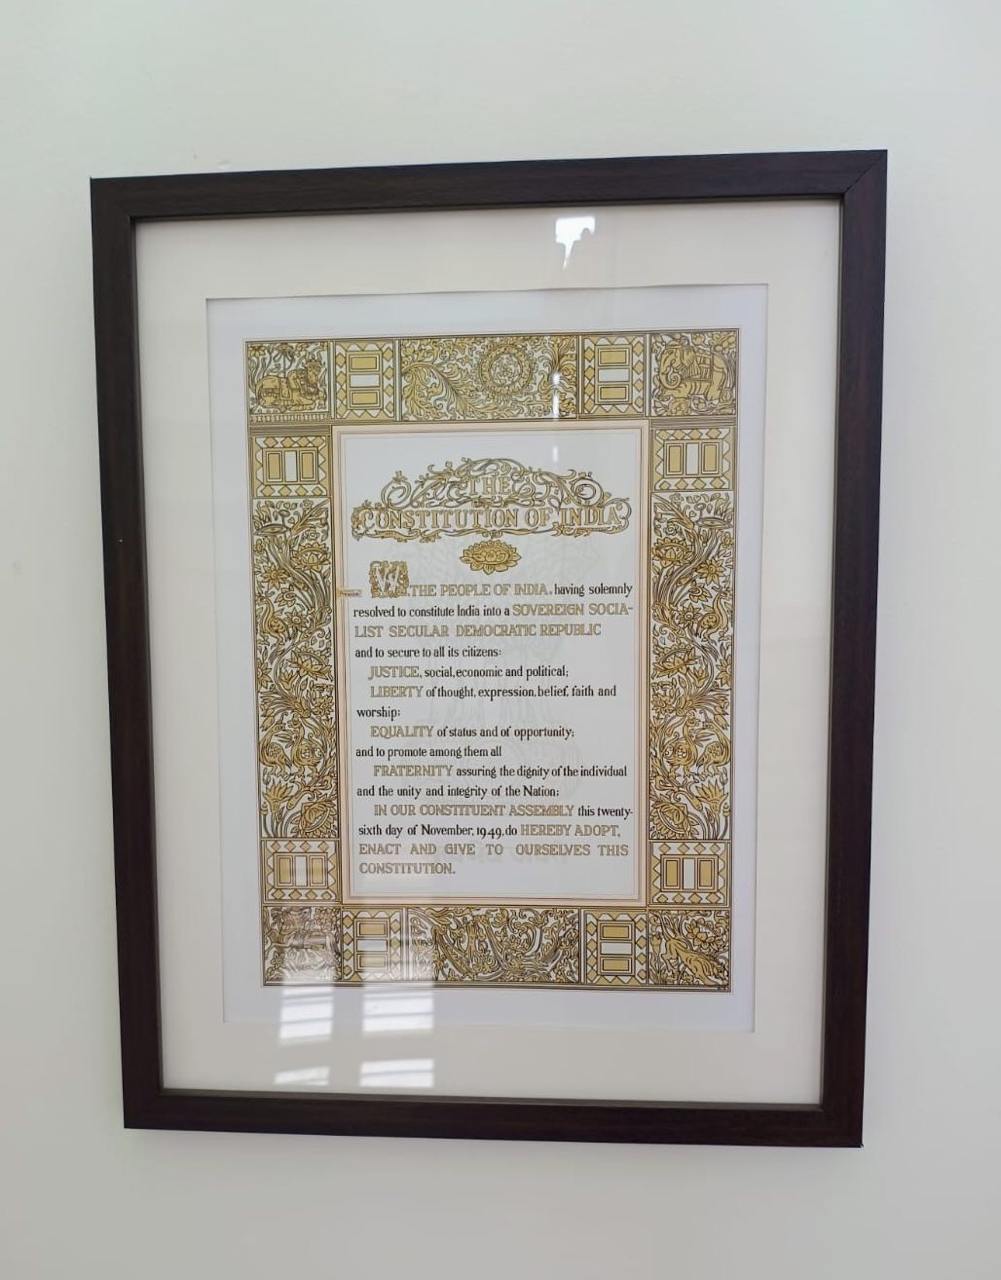 THE
CONSTITUTION OF INDIA
Preamble
WE, THE PEOPLE OF INDIA, having solemnly
resolved to constitute India into a SOVEREIGN SOCIA-
LIST SECULAR DEMOCRATIC REPUBLIC
and to secure to all its citizens:
JUSTICE, social, economic and political;
LIBERTY of thought, expression, belief, faith and
worship;
EQUALITY of status and of opportunity;
and to promote among them all
FRATERNITY assuring the dignity of the individual
and the unity and integrity of the Nation;
IN OUR CONSTITUENT ASSEMBLY this twenty-
sixth day of November, 1949, do HEREBY ADOPT,
ENACT AND GIVE TO OURSELVES THIS
CONSTITUTION.